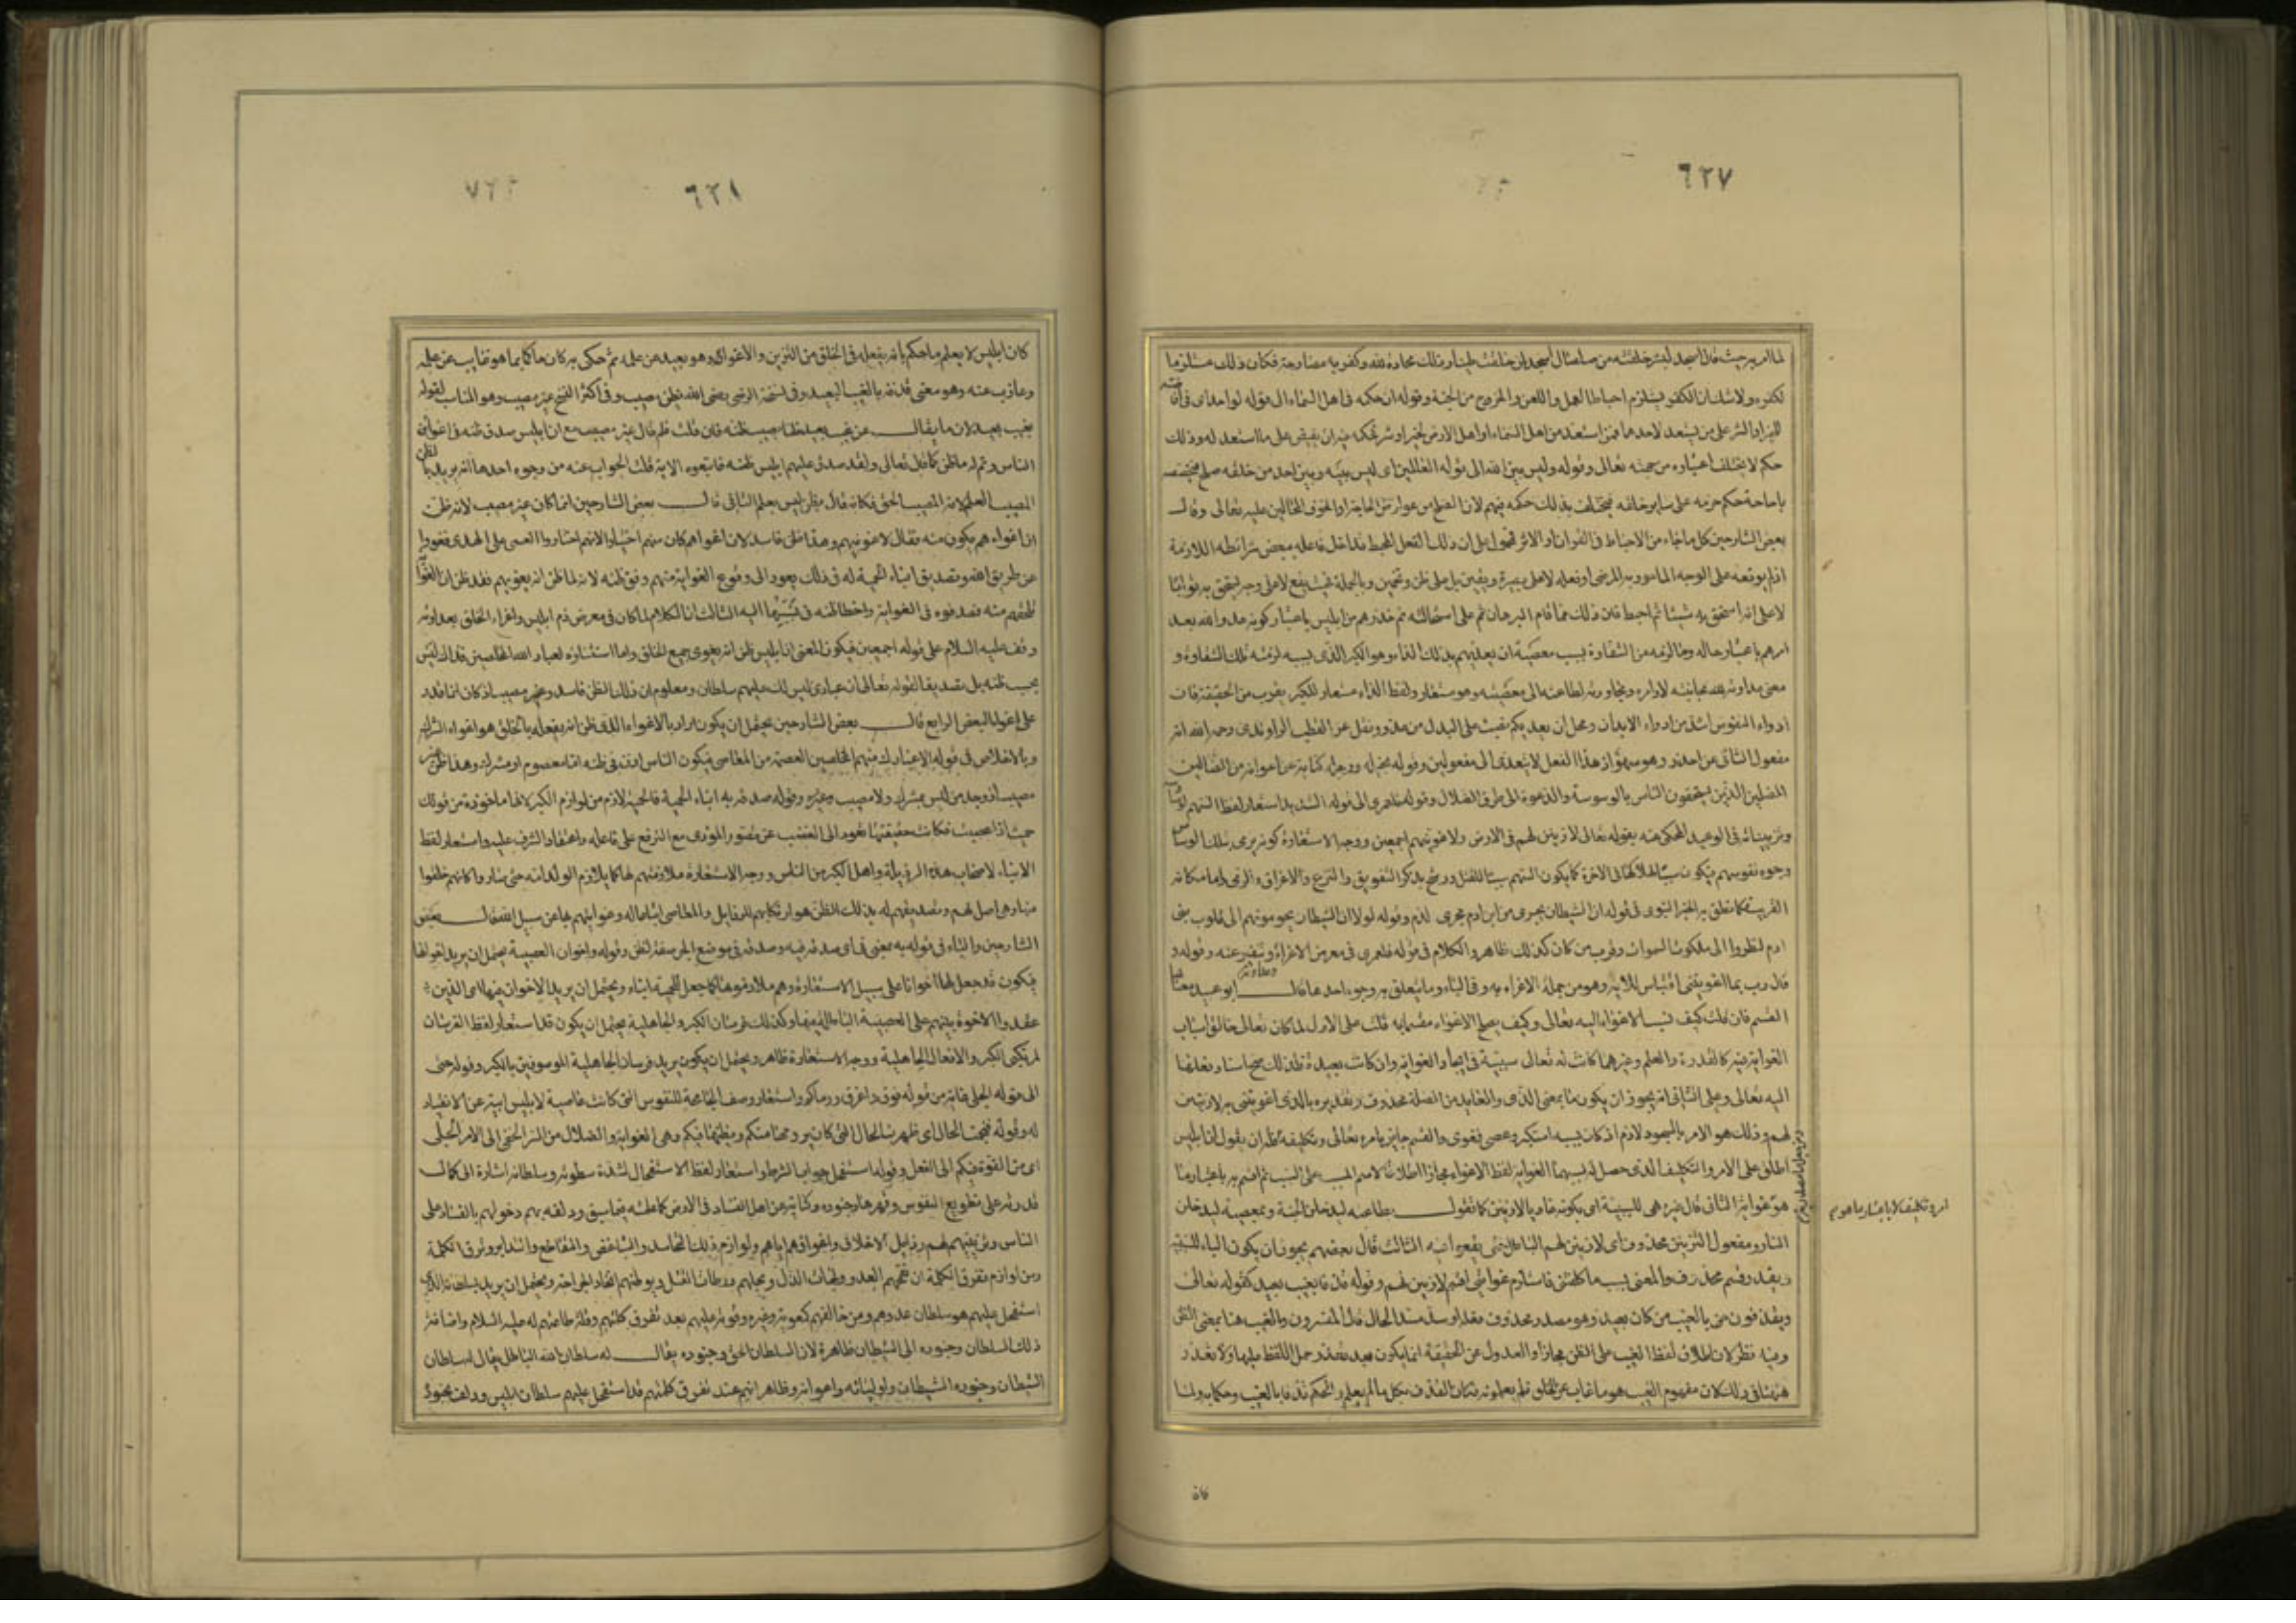 ٦٢٧
لما امر به حيث قال اسجد لبشر خلقته من صلصال أسجد لمن خلقت طينا وذلك محادة لله وكفر به مصارحة فكان ذلك مستلزما
لكفره ولا شك ان الكفر يستلزم احباط العمل واللعن والخروج من الجنة وقوله ان حكمه فى اهل السماء الى قوله لواحد اى فى ان
للخير او الشر على من يستعد لاحدهما فمن استعد من اهل السماء او اهل الارض لخير او شر حكمه فيه ان يفيض على ما استعد له وذلك
حكم لا يختلف اعتباره من جهته تعالى وقوله وليس بين الله الى قوله العالمين اى ليس بينه وبين احد من خلقه صلح
باباحة حكم حرمه على ساير خلقه فيختلف بذلك حكمه فيهم لان الصلح من عوارض الحاجة او الخوف المحالين عليه تعالى وقال
بعض الشارحين كل ما جاء من الاحباط فى القران او الاثر فمحمول على ان ذلك الفعل المحبط قد اخل فاعله ببعض شرائطه اللازمة
اذ لم يوقعه على الوجه المامور به المرضى او فعله لا على بصيرة ويقين بل على ظن وتخمين وبالجملة فحيث يقع لا على وجه يستحق به ثوابا
لا على انه استحق به شيئا ثم احبط فان ذلك مما قام البرهان ثم على استحالته ثم حذرهم من ابليس باعتبار كونه عدوا لله بعد
امرهم باعتبار حاله وما لزمه من الشقاوة بسبب معصيته ان يعديهم بذلك الداء وهو الكبر الذى بسببه لزمته تلك الشقاوة و
معنى عداوته لله مجانبته لاوامره وتجاوزه لطاعته الى معصيته وهو مستعار ولفظ الداء مستعار للكبر بقرب من الحقيقة فان
ادواء النفوس اشد من ادواء الابدان ومحل ان يعديكم نصب على البدل من عدو ونقل عن القطب الراوندى رحمه الله انه
مفعول الثانى عن احذر وهو سهو اذ هذا الفعل لا يتعدى الى مفعولين وقوله بخيله ورجله كناية عن اعوانه من الضالين
المضلين الذين يستخفون الناس بالوسوسة والدعوة الى طرق الضلال وقوله فلعمرى الى قوله الشديد استعار لفظ السهم
وتزيينانه فى الوعيد المحكى عنه بقوله تعالى لازينن لهم فى الارض ولاغوينهم اجمعين ووجه الاستعارة كونه يرمى بتلك
وجوه نفوسهم فيكون سببا لهلاكها فى الاخرة كما يكون السهم سببا للقتل ورشح بذكر التفويق والنزع والاغراق والرمى واما مكانه
القريب فكما نطق به الخبر النبوى فى قوله ان الشيطان يجرى من ابن ادم مجرى الدم وقوله لولا ان الشيطان يحومون الى قلوب بنى
ادم لنظروا الى ملكوت السموات وقرب من كان كذلك ظاهر والكلام فى قوله فلعمرى فى معرض الاغراء وتنفير عنه وقوله و
قال رب بما اغويتنى اقتباس للاية وهو من جملة الاغراء به وفى الباء وما يتعلق به وجوه احدها قال ابو عبيد معناها
القسم فان قلت كيف نسب الاغواء اليه تعالى وكيف يصلح الاغواء مقسما به قلت على الاول لما كان تعالى خالق اسباب
الغواية فيه كالقدرة والعلم وغيرهما كانت له تعالى سببية فى ايجاد الغواية وان كانت بعيدة فلذلك صح اسناد فعلها
اليه تعالى وعلى الثانى انه يجوز ان يكون ما بمعنى الذى والعايد من الصلة محذوف وتقديره بالذى اغويتنى به لازينن
لهم وذلك هو الامر بالسجود لادم اذ كان بسببه استكبر وعصى فغوى والقسم جايز بامره تعالى وتكليفه ان يقول ان ابليس
اطلق على الامر والتكليف الذى حصل له بسببهما الغواية لفظ الاغواء مجازا اطلاقا لاسم المسبب على السبب ثم اقسم به باعتبار ما
هو غواية الثانى قال غيره هى للسببية اى بكونه غاويا لازينن كما تقول بطاعته ليدخلن الجنة وبمعصيته ليدخلن
النار ومفعول التزيين محذوف اى لازينن لهم الباطل حتى يقعوا فيه الثالث قال بعضهم يجوز ان يكون الباء للسببية
ويقدر قسم محذوف والمعنى بسبب ما كلفتنى فاستلزم غوايتى اقسم لازينن لهم وقوله قذفا بغيب بعيد كقوله تعالى
ويقذفون من بالغيب من مكان بعيد وهو مصدر محذوف فعله او سد مسد الحال قال المفسرون والغيب هنا بمعنى الظن
وفيه نظر لان اطلاق لفظ الغيب على الظن مجاز والعدول عن الحقيقة انما يكون عند تعذر حمل اللفظ عليها ولا تعذر
هنا فى ذلك لان مفهوم الغيب هو ما غاب عن الخلق فلم يعلموه فكان القذف بكل ما لم يعلم والحكم قذفا بالغيب وحكما به ولما
امره وتكليفه لا باعتبار ما هو م
كان
٦٢٨
كان ابليس لا يعلم ما حكم بانه يفعله فى الخلق من التزيين والاغواء وهو بعيد عن علمه ثم حكى به كان حاكما بما هو غايب عن علمه
وعازب عنه وهو معنى قذفه بالغيب البعيد وفى نسخة الرضى رضى الله بظن مصيب وفى اكثر النسخ غير مصيب وهو المناسب لقوله
بغيب بعيد لان ما يقال عن غيب بعيد قلما يصيب ظنه فان قلت فلم قال غير مصيب مع ان ابليس صدق ظنه فى اغوائه
الناس وتم له ما ظن كما قال تعالى ولقد صدق عليهم ابليس ظنه فاتبعوه الاية قلت الجواب عنه من وجوه احدها انه يريد بالظن
المصيب العلم لانه المصيب الحق فكانه قال بظن ليس بعلم الثانى قال بعض الشارحين انما كان غير مصيب لانه ظن
ان اغواءهم يكون منه فقال لاغوينهم وهذا ظن فاسد لان اغواءهم كان منهم اختيارا لانهم اختاروا العمى على الهدى فغووا
عن طريق الله وتصديق ابناء الحمية له فى ذلك يعود الى وقوع الغواية منهم وفق ظنه لانه لما ظن انه يغويهم فقد ظن ان
تلحقهم منه فصدقوه فى الغواية واخطأ ظنه فى نسبتها اليه الثالث ان الكلام لما كان فى معرض ذم ابليس واغراء الخلق بعداوته
وقف عليه السلام على قوله اجمعين فيكون المعنى ان ابليس ظن انه يغوى جميع الخلق واما استثناؤه لعباد الله المخلصين فذلك ليس
بحسب ظنه بل تصديقا لقوله تعالى ان عبادى ليس لك عليهم سلطان ومعلوم ان ذلك الظن فاسد وغير مصيب اذ كان انما قدر
على اغواء البعض الرابع قال بعض الشارحين يحتمل ان يكون اراد بالاغواء الذى ظن انه يفعله بالخلق هو اغواء الشرك
وبالاخلاص فى قوله الا عبادك منهم المخلصين العصمة من المعاصى فيكون الناس اذن فى ظنه اما معصوم او مشرك وهذا ظن غير
مصيب اذ وجد من ليس بمشرك ولا معصوم وغيره وقوله صدقه به ابناء الحمية فالحمية لازم من لوازم الكبر لانها ماخوذة من قولك
حميت اذا غضبت فكانت حقيقتها تعود الى الغضب عن تصور الموذى مع الترفع على فاعله واعتقاد الشرف عليه واستعار لفظ
الابناء لاصحاب هذه الرذيلة واهل الكبر من الناس ووجه الاستعارة ملازمتهم لها كما يلازم الولد امه حتى صاروا كانهم خلقوا
منها وهى اصل لهم وتصديقهم له بذلك الظن هو ارتكابهم للرذايل والمعاصى اتباعا له وغوايتهم بها عن سبيل الله قال بعض
الشارحين والباء فى قوله به بمعنى فى اى صدقه فيه وصدقه فى موضع الجر صفة لظن وقوله واخوان العصبية يحتمل ان يريد اخوانها
فيكون قد جعل لها اخوانا على سبيل الاستعارة وهم ملازموها كما جعل للحمية ابناء ويحتمل ان يريد الاخوان فيها اى الذين
عقدوا الاخوة بينهم على العصبية الباطلة فيها وكذلك فرسان الكبر والجاهلية يحتمل ان يكون قد استعار لفظ الفرسان
لمرتكبى الكبر والافعال الجاهلية ووجه الاستعارة ظاهر ويحتمل ان يكون يريد فرسان الجاهلية الموصوفين بالكبر وقوله حتى
الى قوله الجلى غاية من قوله فوق واغرق ورماكم واستعار وصف الجامحة للنفوس التى كانت عاصية لابليس ابية عن الانقياد
له وقوله فنجمت الحال اى ظهرت الحال التى كان يرومها منكم ويظنها فيكم وهى الغواية والضلال من السر الخفى الى الامر الجلى
اى من القوة فيكم الى الفعل وقوله استفحل جواب الشرط واستعار لفظ الاستفحال لشدة سطوته وسلطانه اشارة الى كمال
قدرته على تطويع النفوس وقهرها وجنوده وكناية عن اهل الفساد فى الارض كما علمته فيما سبق ودلفه بهم دخولهم بالفساد على
الناس وتزيينهم لهم رذايل الاخلاق واغواؤهم اياهم ولوازم ذلك التحاسد والتباغض والتقاطع والتدابر وتفرق الكلمة
ومن لوازم تفرق الكلمة ان يقحمهم العدو ولجات الذل ويحلهم ورطات القتل ويوطئهم اثخان الجراحة ويحتمل ان يريد بسلطانه الذى
استفحل عليهم هو سلطان عدوهم ومن خالفهم كمعوية وغيره وقوته عليهم بعد تفرق كلمتهم وقلة طاعتهم له عليه السلام واضافة
ذلك السلطان وجنوده الى الشيطان ظاهرة لان السلطان الحق وجنوده يقال له سلطان الله والباطل يقال له سلطان
الشيطان وجنوده الشيطان واوليائه واعوانه وظاهر انهم عند تفرق كلمتهم قد استفحل عليهم سلطان ابليس ودلف بجنوده